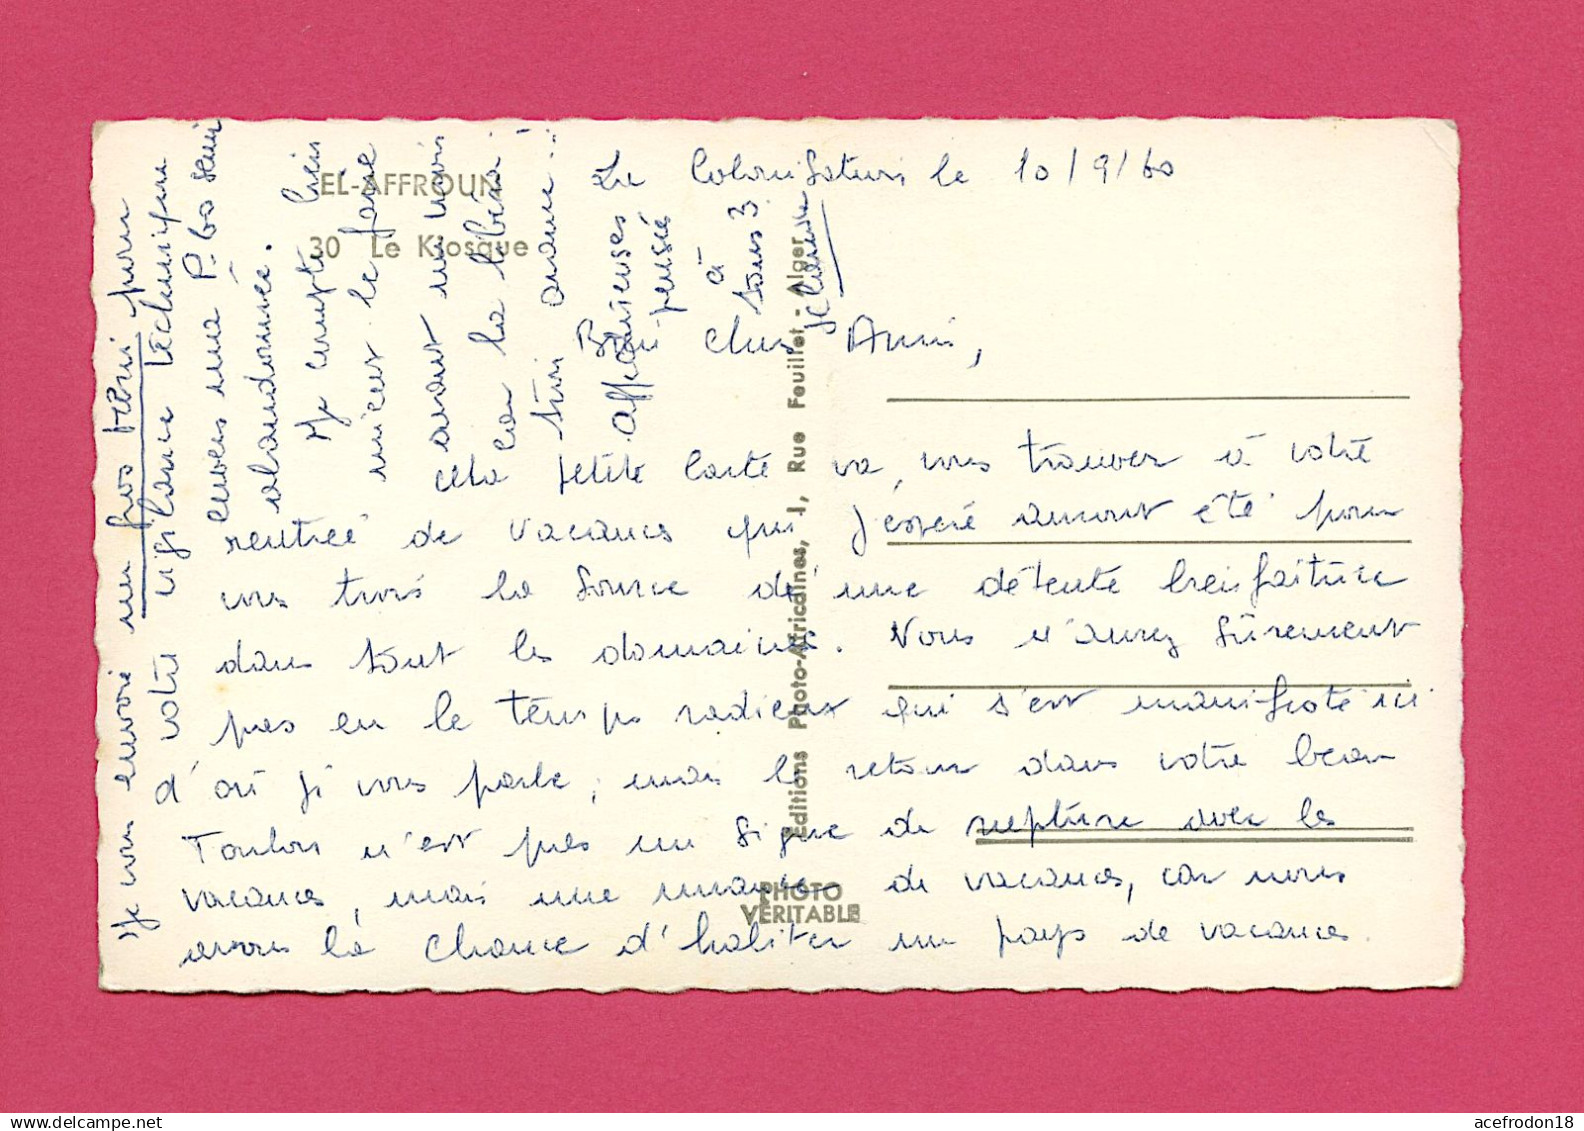 EL-AFFROUN
30 Le Kiosque
le 10/9/60
Bien chers Amis,
cette petite carte va vous trouver à votre
rentrée de vacances qui j'espère auront été pour
vous trois la source d'une détente bienfaitrice
dans tout les domaines. Vous n'aurez sûrement
pas eu le temps radieux qui s'est manifesté ici
d'où je vous parle, mais le retour dans votre beau
Toulon n'est pas un signe de rupture avec les
vacances, mais une de vacances, car nous
avons la chance d'habiter un pays de vacances.
Je vous envoie un gros merci pour
votre vigilance technique
envers ma P.60
abandonnée.
Je compte bien
mieux le faire
avant un mois
car la
Affectueuses
pensées
à
tous 3
Editions Photo-Africaines, 1, Rue Feuillet - Alger
PHOTO
VERITABLE
acefrodon18